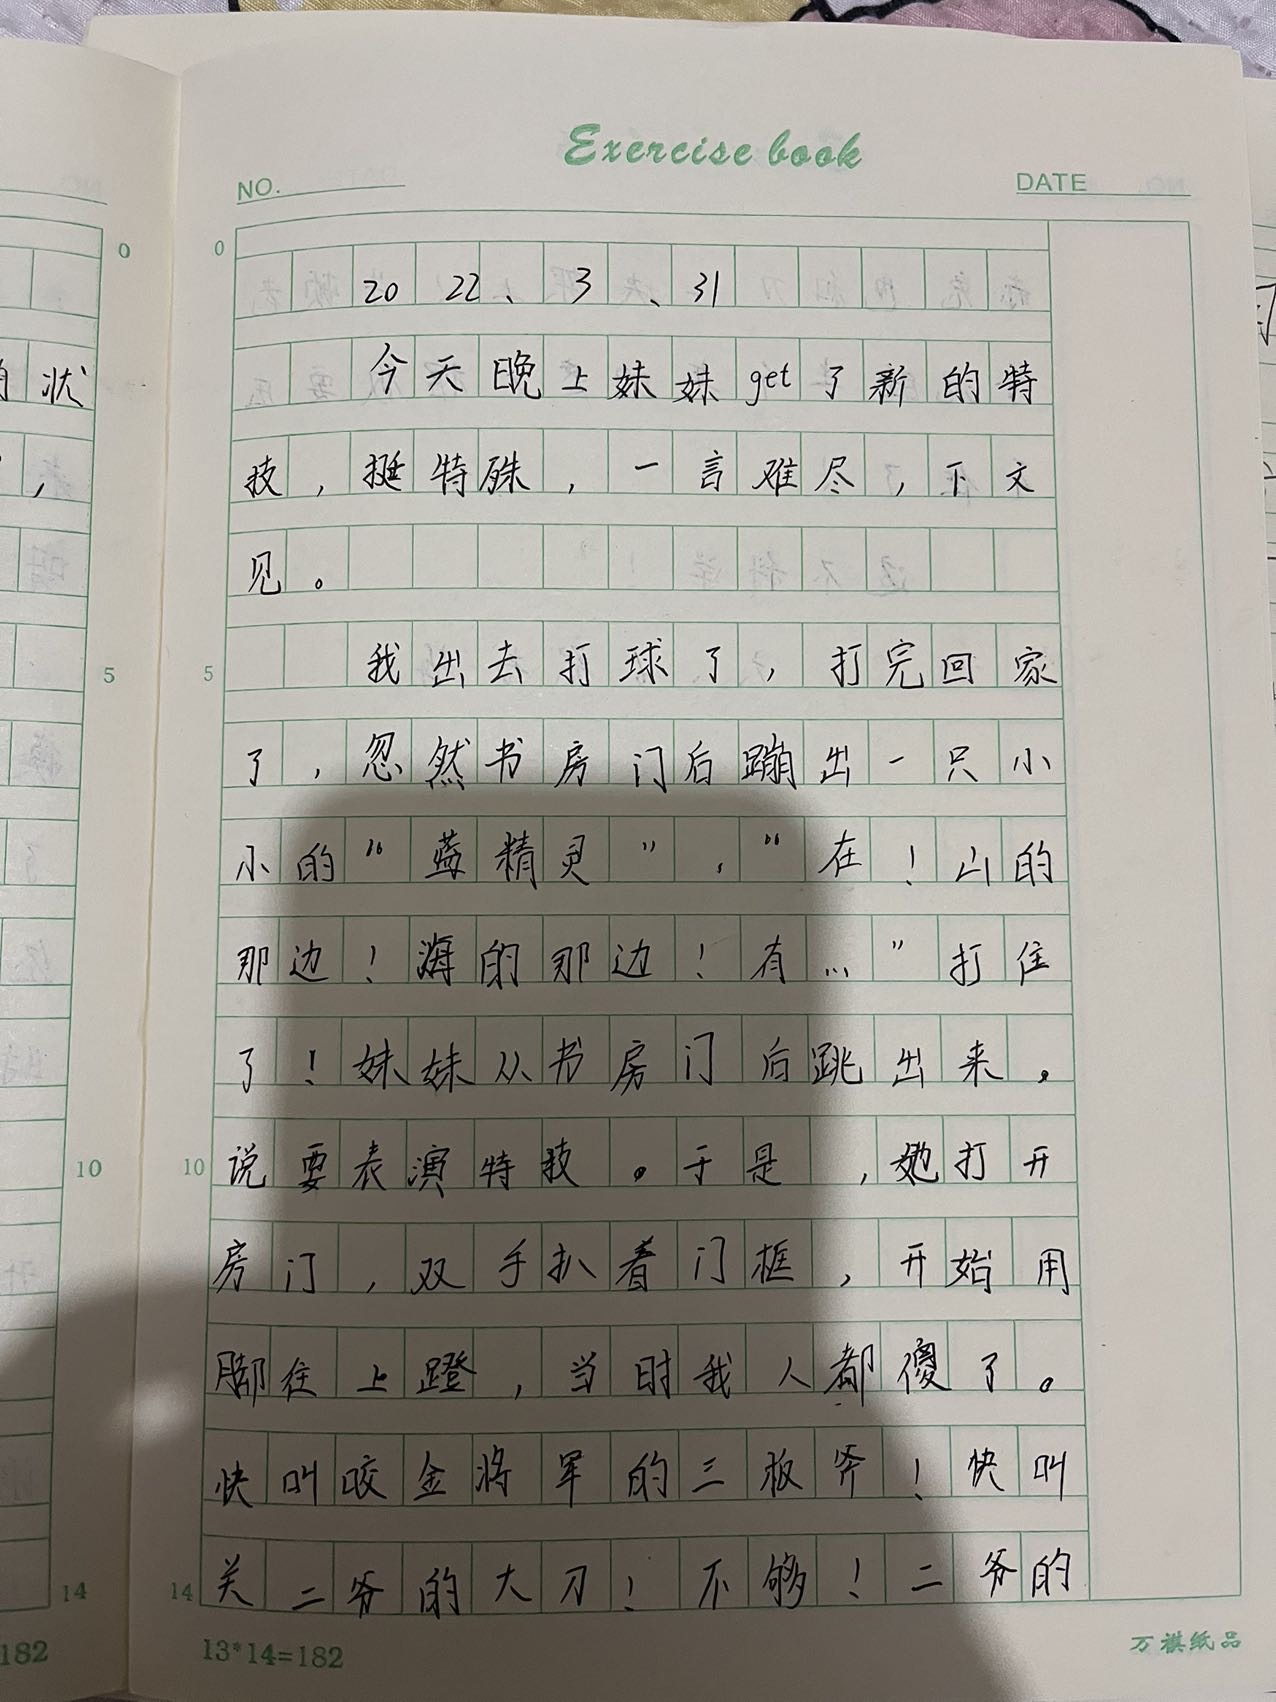 Exercise book
NO. DATE
0 0
2022、3、31
今天晚上妹妹get了新的特
状
技，挺特殊，一言难尽，下文
，
见。
5 5
我出去打球了，打完回家
了，忽然书房门后蹦出一只小
小的“蓝精灵”，“在！山的
那边！海的那边！有…”打住
了！妹妹从书房门后跳出来，
10 10
说要表演特技。于是，她打开
房门，双手扒着门框，开始用
脚往上蹬，当时我人都傻了。
快叫咬金将军的三板斧！快叫
14 14
关二爷的大刀！不够！二爷的
182
13*14=182
万祺纸品